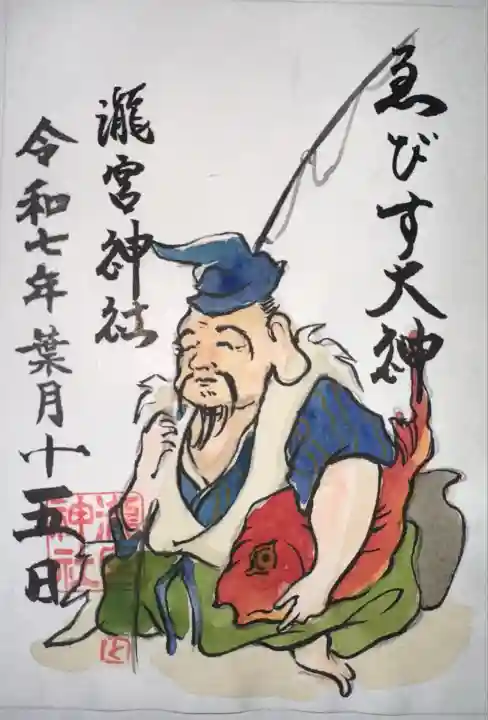 ゑびす大神
瀧宮神社
令和七年葉月十五日
瀧宮
神社